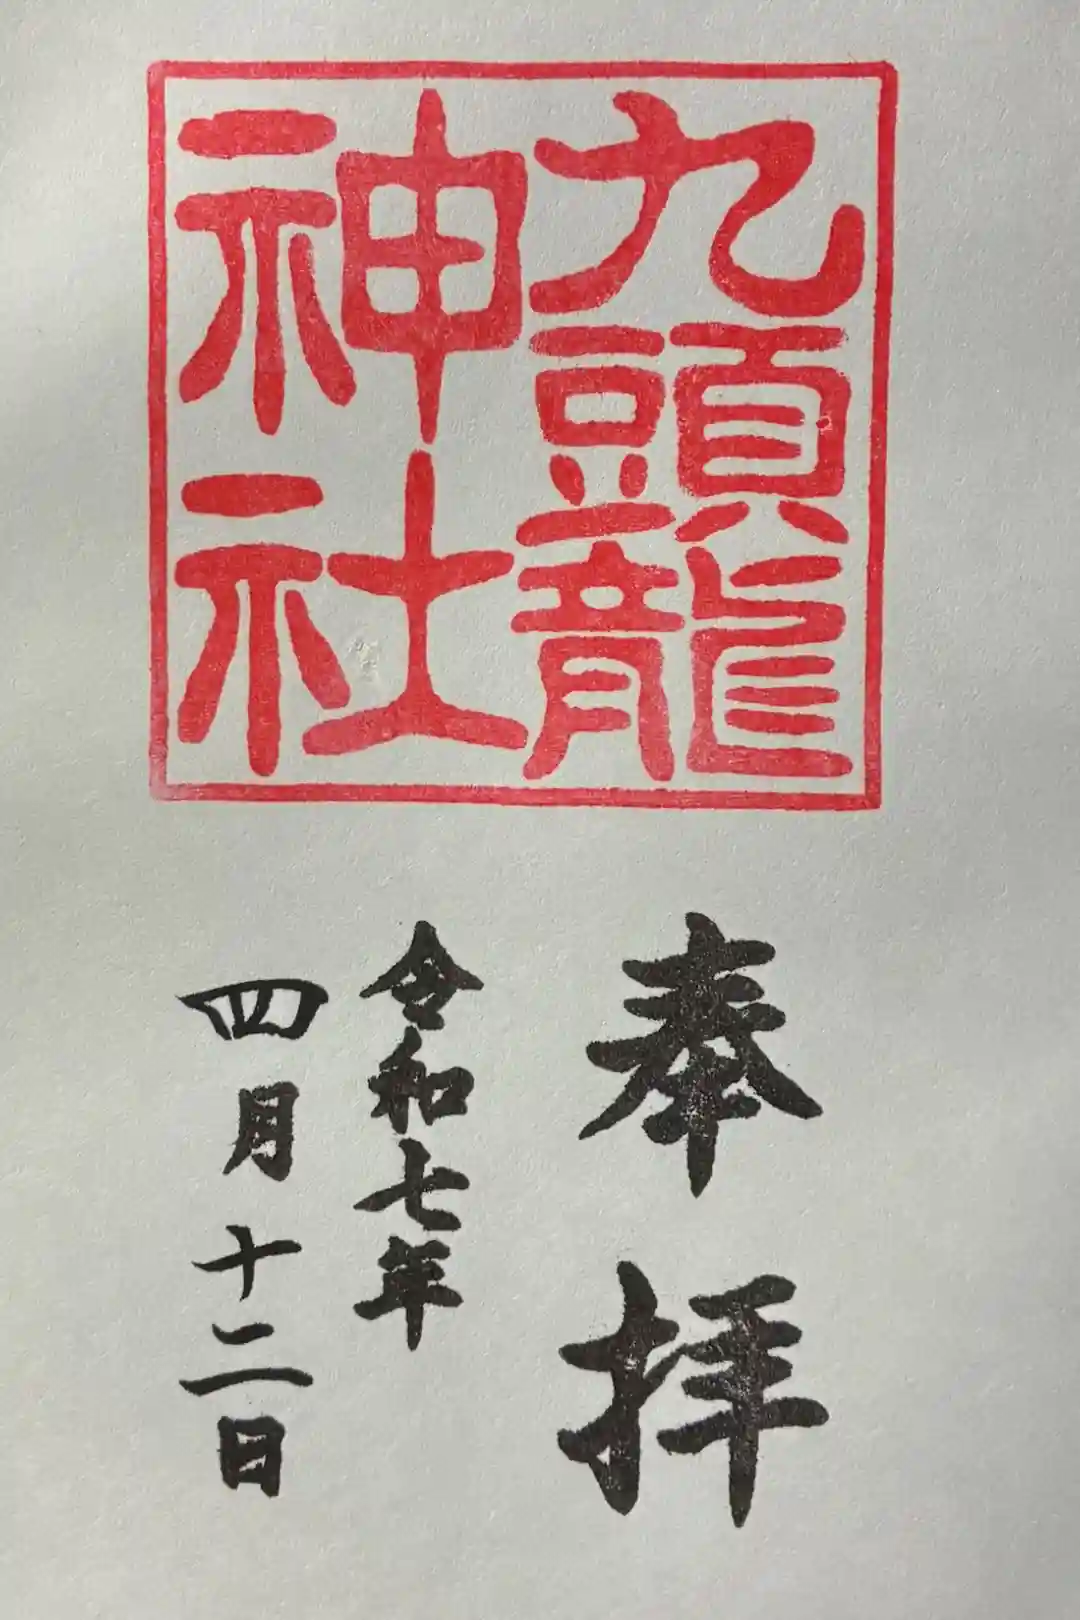 九頭龍
神社
奉拝
令和七年
四月十二日